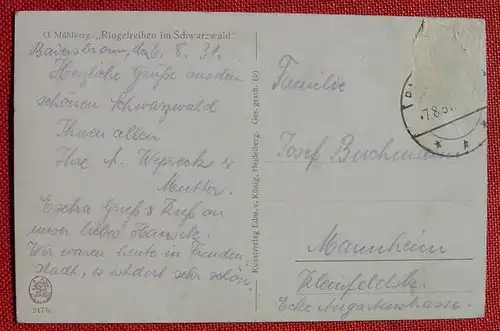 G. Mühlberg: „Ringelreihen im Schwarzwald"
Baiersbronn, d. 6. 8. 31.
Herzliche Grüße aus dem
schönen Schwarzwald
Ihnen allen
Ihre A.
Mutter.
Extra Gruß & Kuß an
unser liebes
Wir waren heute in Freuden
stadt, es ist dort sehr schön.
Kunstverlag Edm. v. König, Heidelberg. Ges. gesch. (6)
7.8.31
Familie
Josef
Mannheim
Kleinfeldstr.
Ecke Augartenstrasse.